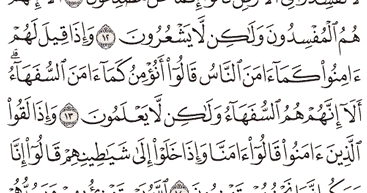 هُمُ ٱلْمُفْسِدُونَ وَلَٰكِن لَّا يَشْعُرُونَ ١٢ وَإِذَا قِيلَ لَهُمْ
ءَامِنُوا۟ كَمَآ ءَامَنَ ٱلنَّاسُ قَالُوٓا۟ أَنُؤْمِنُ كَمَآ ءَامَنَ ٱلسُّفَهَآءُ ۗ
أَلَآ إِنَّهُمْ هُمُ ٱلسُّفَهَآءُ وَلَٰكِن لَّا يَعْلَمُونَ ١٣ وَإِذَا لَقُوا۟
ٱلَّذِينَ ءَامَنُوا۟ قَالُوٓا۟ ءَامَنَّا وَإِذَا خَلَوْا۟ إِلَىٰ شَيَٰطِينِهِمْ قَالُوٓا۟ إِنَّا